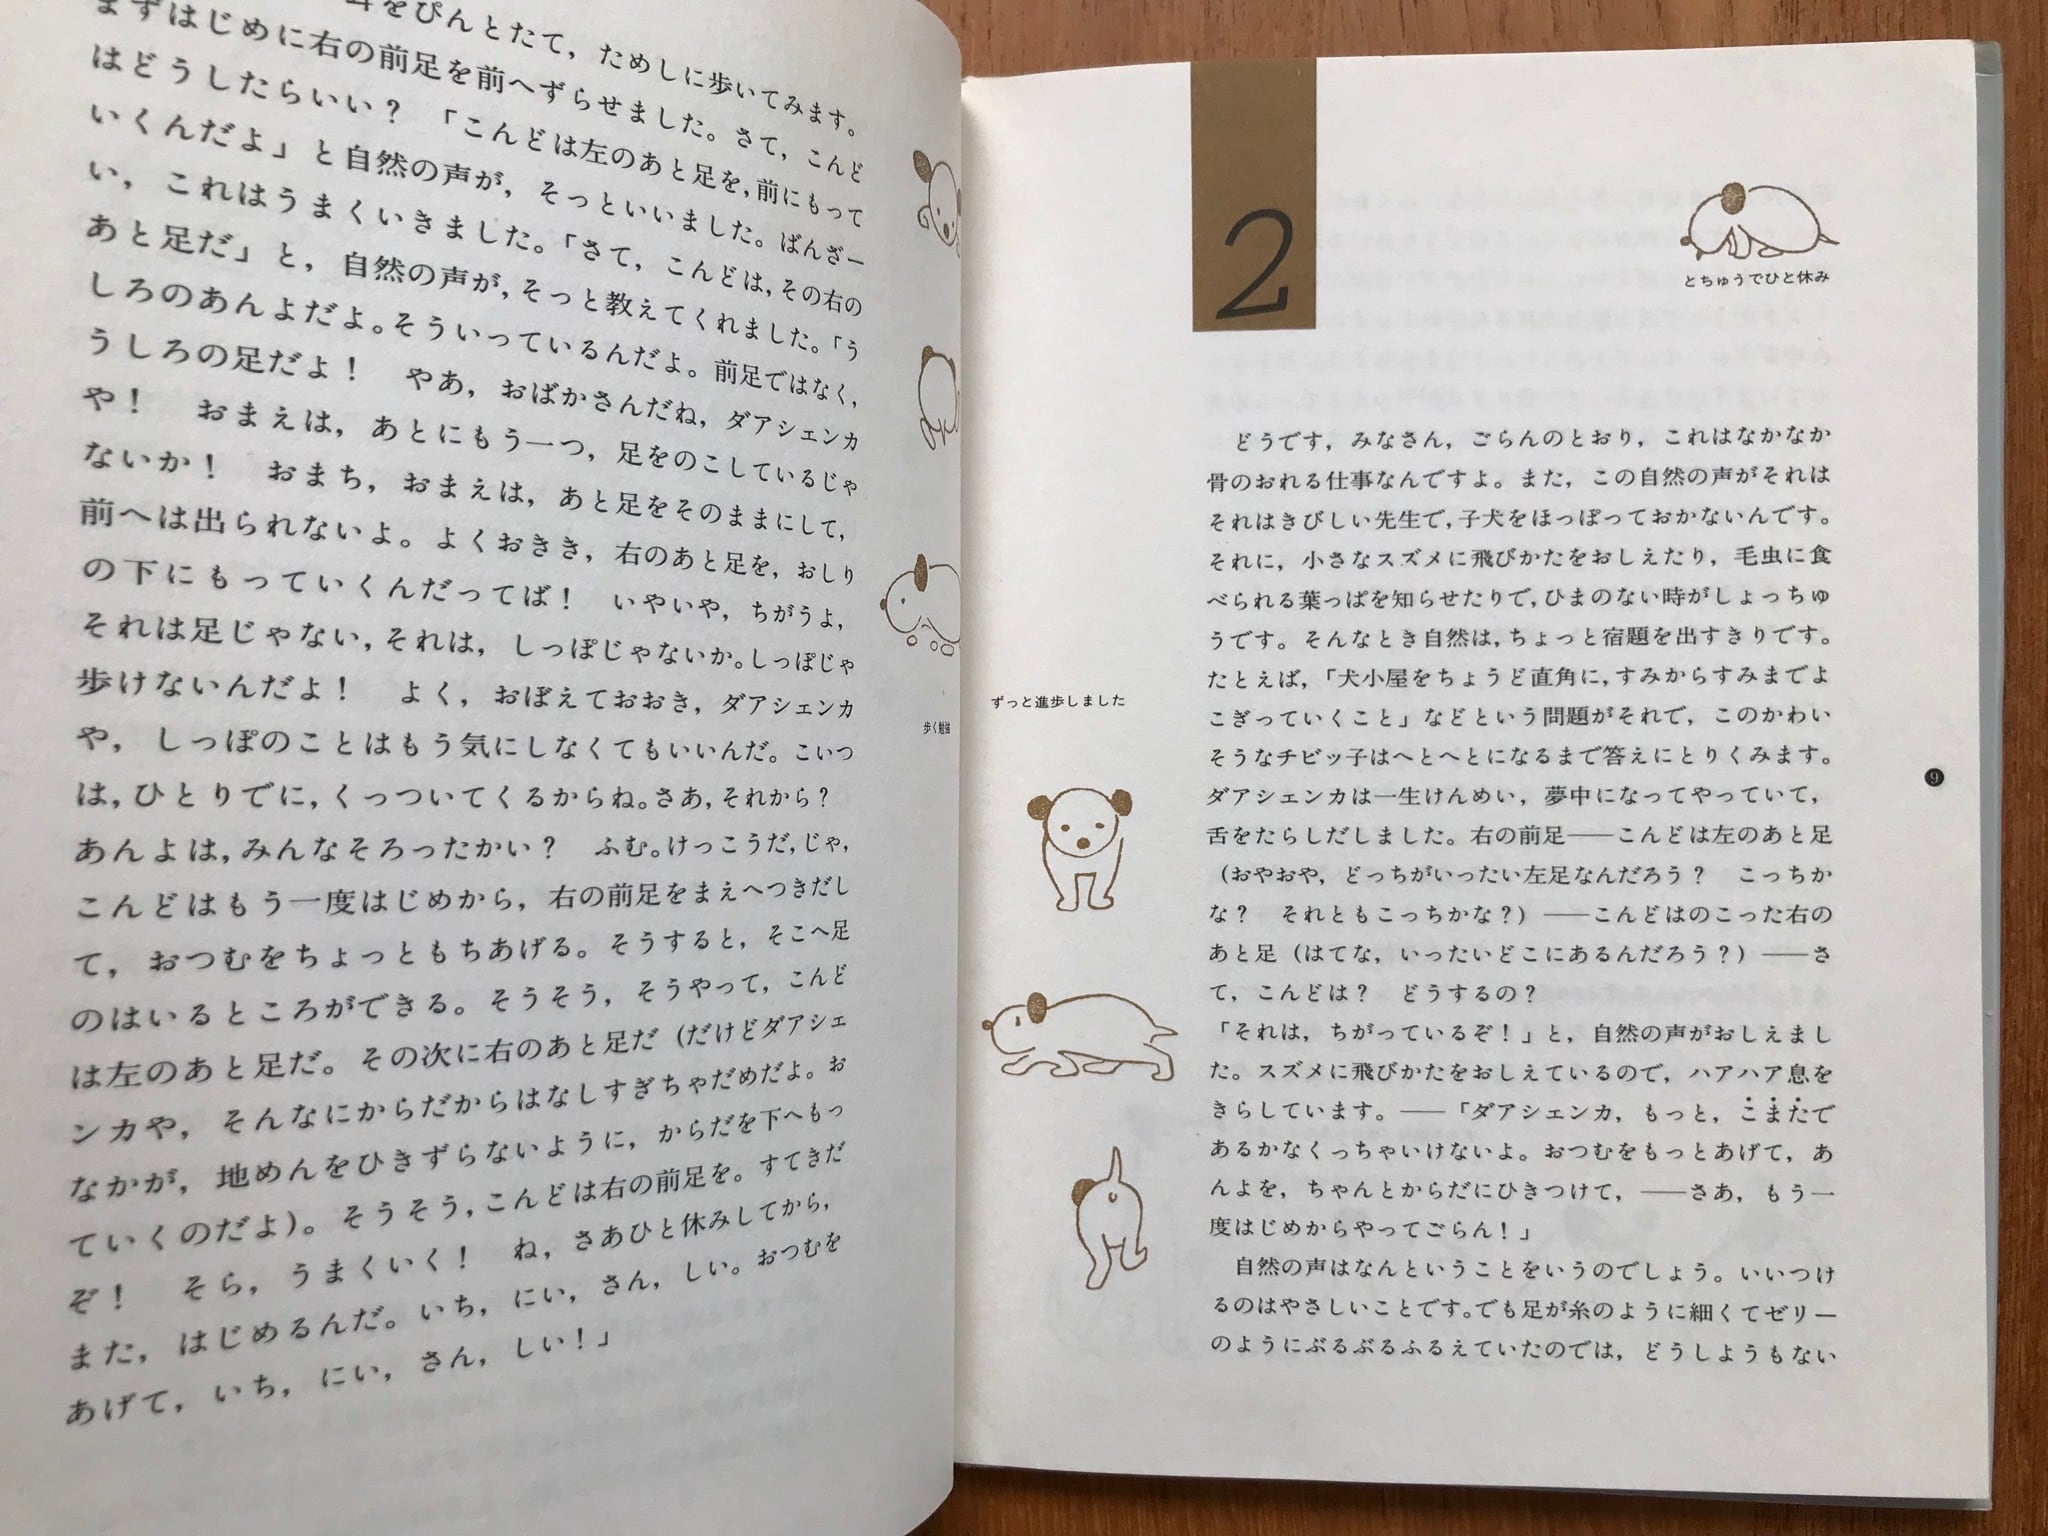 をぴんとたて，ためしに歩いてみます。
まずはじめに右の前足を前へずらせました。さて，こんど
はどうしたらいい？　「こんどは左のあと足を，前にもって
いくんだよ」と自然の声が，そっといいました。ばんざー
い，これはうまくいきました。「さて，こんどは，その右の
あと足だ」と，自然の声が，そっと教えてくれました。「う
しろのあんよだよ。そういっているんだよ。前足ではなく，
うしろの足だよ！　やあ，おばかさんだね，ダアシェンカ
や！　おまえは，あとにもう一つ，足をのこしているじゃ
ないか！　おまち，おまえは，あと足をそのままにして，
前へは出られないよ。よくおきき，右のあと足を，おしり
の下にもっていくんだってば！　いやいや，ちがうよ，
それは足じゃない，それは，しっぽじゃないか。しっぽじゃ
歩けないんだよ！　よく，おぼえておおき，ダアシェンカ
や，しっぽのことはもう気にしなくてもいいんだ。こいつ
は，ひとりでに，くっついてくるからね。さあ，それから？
あんよは，みんなそろったかい？　ふむ。けっこうだ，じゃ，
こんどはもう一度はじめから，右の前足をまえへつきだし
て，おつむをちょっともちあげる。そうすると，そこへ足
のはいるところができる。そうそう，そうやって，こんど
は左のあと足だ。その次に右のあと足だ（だけどダアシェ
ンカや，そんなにからだからはなしすぎちゃだめだよ。お
なかが，地めんをひきずらないように，からだを下へもっ
ていくのだよ）。そうそう，こんどは右の前足を。すてきだ
ぞ！　そら，うまくいく！　ね，さあひと休みしてから，
また，はじめるんだ。いち，にい，さん，しい。おつむを
あげて，いち，にい，さん，しい！」
歩く勉強
2
とちゅうでひと休み
どうです，みなさん，ごらんのとおり，これはなかなか
骨のおれる仕事なんですよ。また，この自然の声がそれは
それはきびしい先生で，子犬をほっぽっておかないんです。
それに，小さなスズメに飛びかたをおしえたり，毛虫に食
べられる葉っぱを知らせたりで，ひまのない時がしょっちゅ
うです。そんなとき自然は，ちょっと宿題を出すきりです。
たとえば，「犬小屋をちょうど直角に，すみからすみまでよ
こぎっていくこと」などという問題がそれで，このかわい
そうなチビッ子はへとへとになるまで答えにとりくみます。
ダアシェンカは一生けんめい，夢中になってやっていて，
舌をたらしだしました。右の前足――こんどは左のあと足
（おやおや，どっちがいったい左足なんだろう？　こっちか
な？　それともこっちかな？）――こんどはのこった右の
あと足（はてな，いったいどこにあるんだろう？）――さ
て，こんどは？　どうするの？
「それは，ちがっているぞ！」と，自然の声がおしえまし
た。スズメに飛びかたをおしえているので，ハアハア息を
きらしています。――「ダアシェンカ，もっと，こまたで
あるかなくっちゃいけないよ。おつむをもっとあげて，あ
んよを，ちゃんとからだにひきつけて，――さあ，もう一
度はじめからやってごらん！」
自然の声はなんということをいうのでしょう。いいつけ
るのはやさしいことです。でも足が糸のように細くてゼリー
のようにぶるぶるふるえていたのでは，どうしようもない
ずっと進歩しました
9